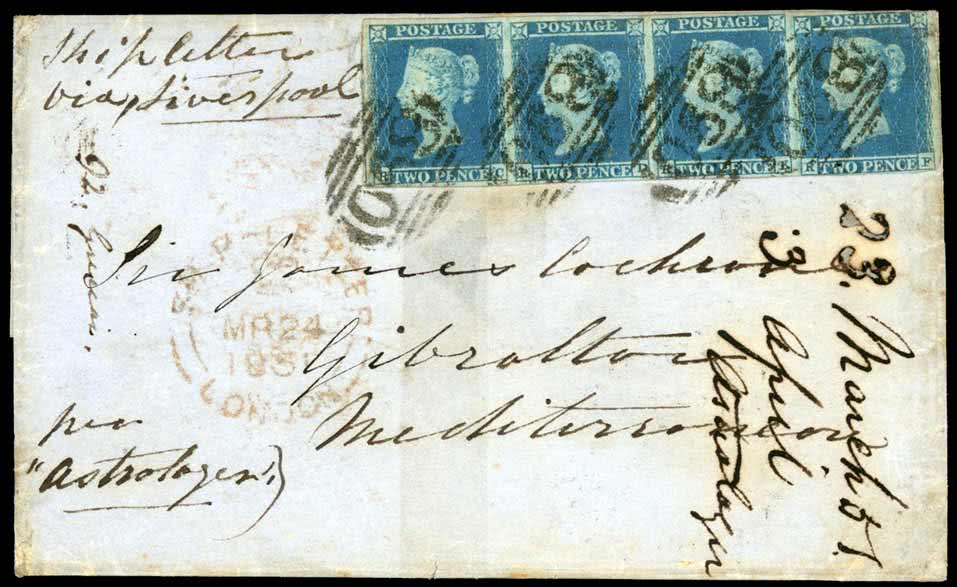 Ship letter
via Liverpool
POSTAGE POSTAGE POSTAGE POSTAGE
R TWO PENCE C R TWO PENCE D R TWO PENCE E R TWO PENCE F
Sir James Cochrane
Gibraltar
Mediterranean
per
"Astrologer")
SHIP-LETTER
MR 24
1851
LONDON
23. March 51
3 April
Astrologer